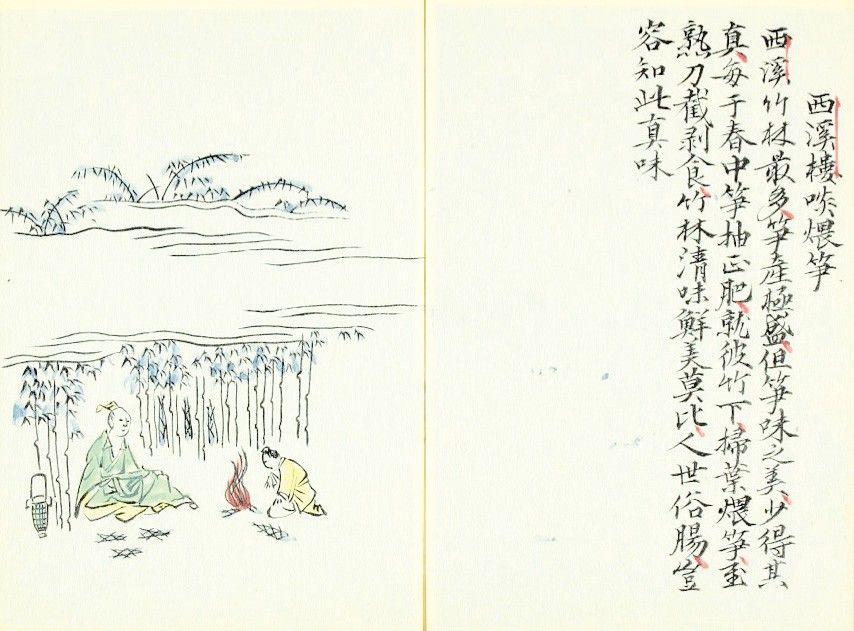 西溪樓啖煨笋
西溪竹林最多笋產極盛但笋味之美少得其
真每于春中笋抽正肥就彼竹下掃葉煨笋至
熟刀截剥食竹林清味鮮美莫比人世俗腸豈
容知此真味